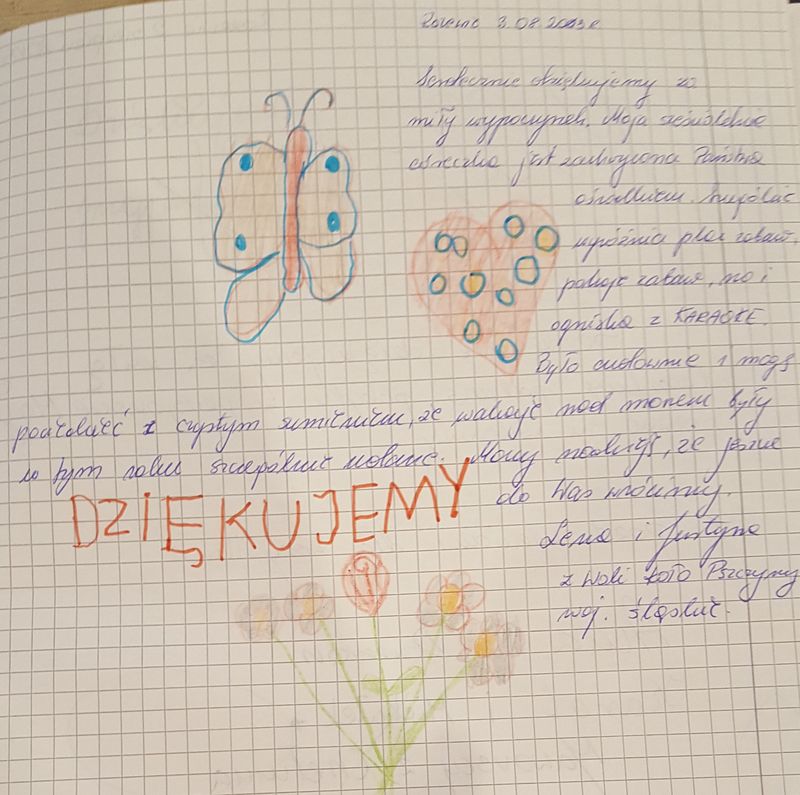 3.08.2013 r.
Serdecznie dziękujemy za
miły wypoczynek. Moja sześcioletnia
córeczka jest zachwycona Państwa
ośrodkiem. Szczególnie
wyróżnia plac zabaw,
pokoje zabaw, no i
ogniska z KARAOKE.
Było cudownie i mogę
powiedzieć z czystym sumieniem, że wakacje nad morzem były
w tym roku szczególnie udane. Mamy nadzieję, że jeszcze
do Was wrócimy.
DZIĘKUJEMY
Lena i Justyna
z Woli koło Pszczyny
woj. śląskie.